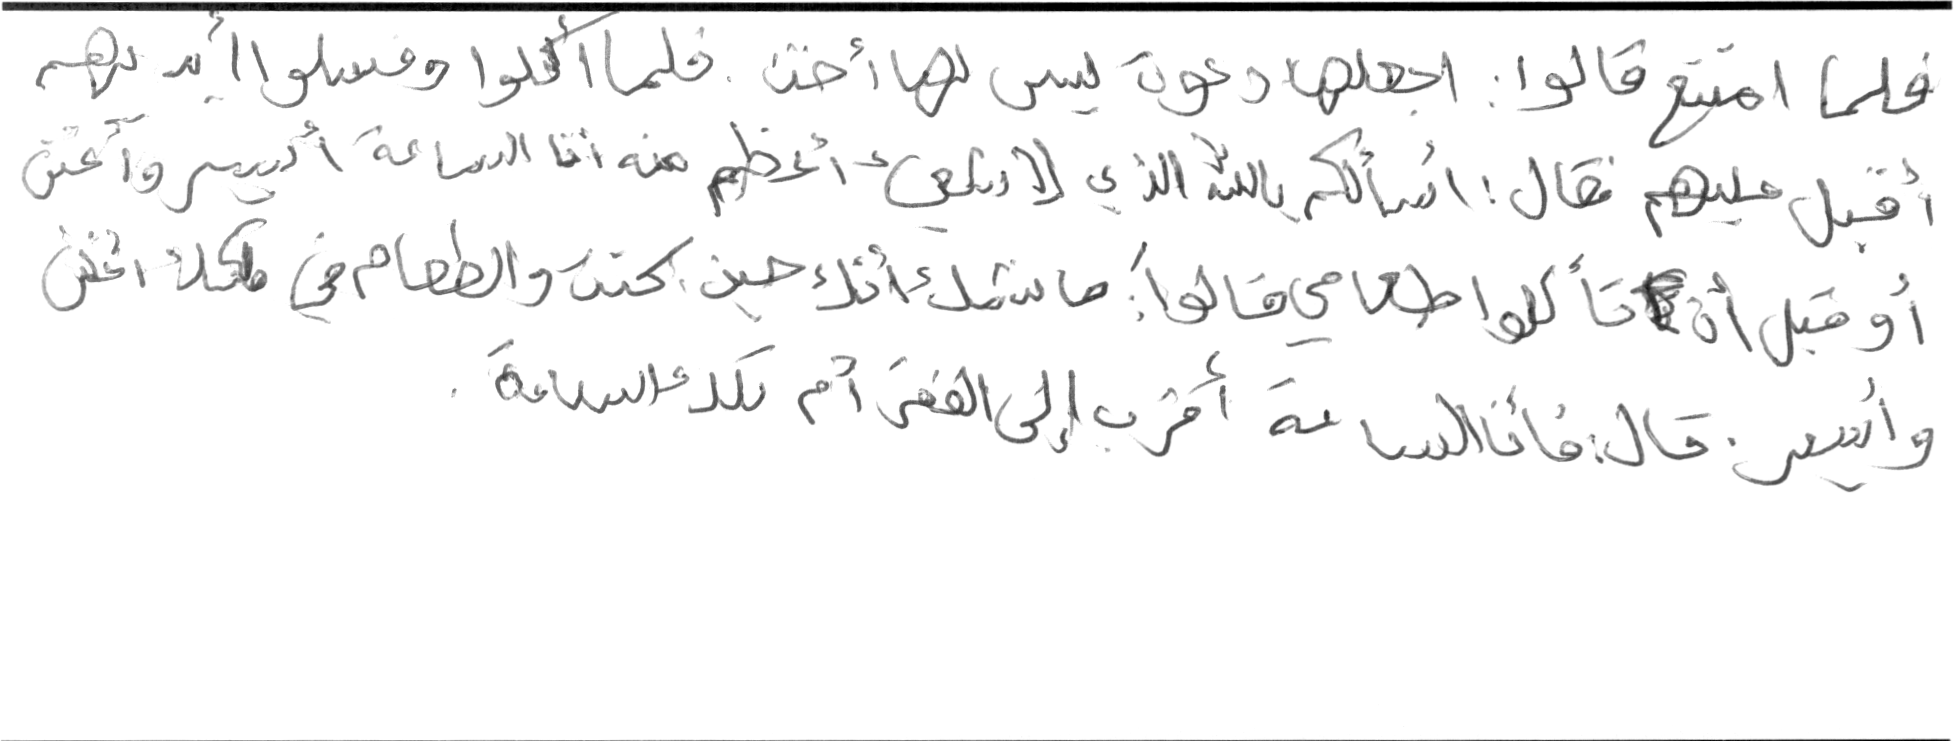 فلما امتنع قالوا: اجعلها دعوة ليس لها أخت. فلما أكلوا وغسلوا أيديهم
أقبل عليهم فقال: أسألكم بالله الذي لا شيء أعظم منه أنا الساعة أيسر وأغنى
أو قبل أن تأكلوا طعامي قالوا: ما نشك أنك حين كنت والطعام في ملكك أغنى
وأيسر. قال: فأنا الساعة أقرب إلى الفقر أم تلك الساعة.